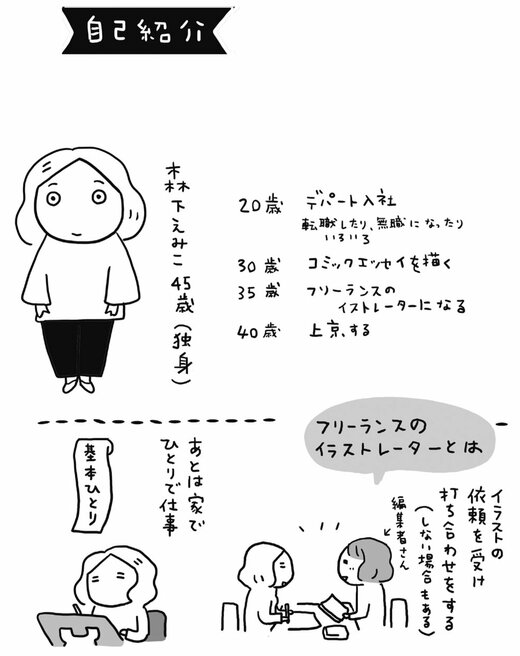 自己紹介
森下えみこ 45歳(独身)
20歳 デパート入社
転職したり、無職になったり
いろいろ
30歳 コミックエッセイを描く
35歳 フリーランスの
イストレーターになる
40歳 上京する
フリーランスの
イラストレーターとは
イラストの
依頼を受け
打ち合わせをする
(しない場合もある)
編集者さん
あとは家で
ひとりで仕事
基本ひとり